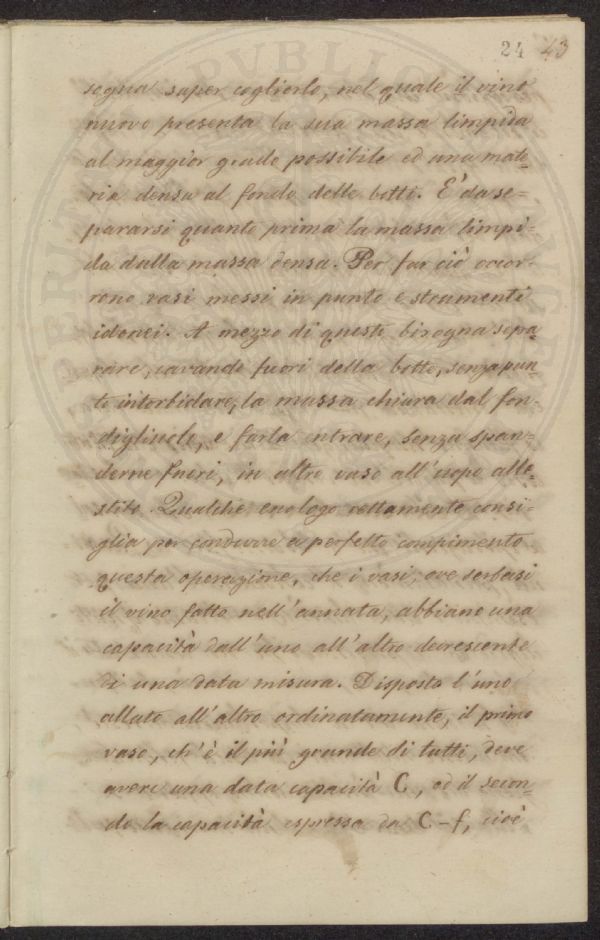 24 43
sogna saper coglierlo, nel quale il vino
nuovo presenta la sua massa limpida
al maggior grado possibile ed una mate=
ria densa al fondo delle botti. E' da se=
pararsi quanto prima la massa limpi=
da dalla massa densa. Per far ciò occor=
rono vasi messi in punto e strumenti
idonei. A mezzo di questi bisogna sepa=
rare, cavando fuori della botte, senza pun=
to intorbidare, la massa chiara dal fon=
digliuolo, e farla entrare, senza span=
derne fuori, in altro vaso all'uopo alle=
stito. Qualche enologo rettamente consi=
glia per condurre a perfetto compimento
questa operazione, che i vasi, ove serbasi
il vino fatto nell'annata, abbiano una
capacità dall'uno all'altro decrescente
di una data misura. Disposto l'uno
allato all'altro ordinatamente, il primo
vaso, ch'è il più grande di tutti, deve
avere una data capacità C, ed il secon=
do la capacità espressa da C-f, cioè
PUBLIC
PERIT